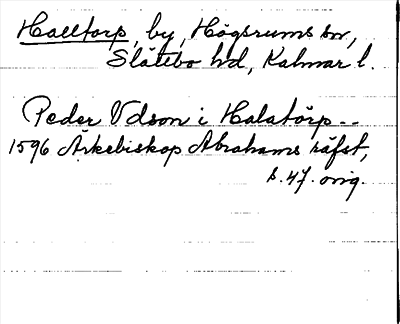 Halltorp, by, Högsrums sn,
Slättbo hd, Kalmar l.
Peder Udson i Halatörp--
1596 Ärkebiskop Abrahams räfst,
s. 47. orig.